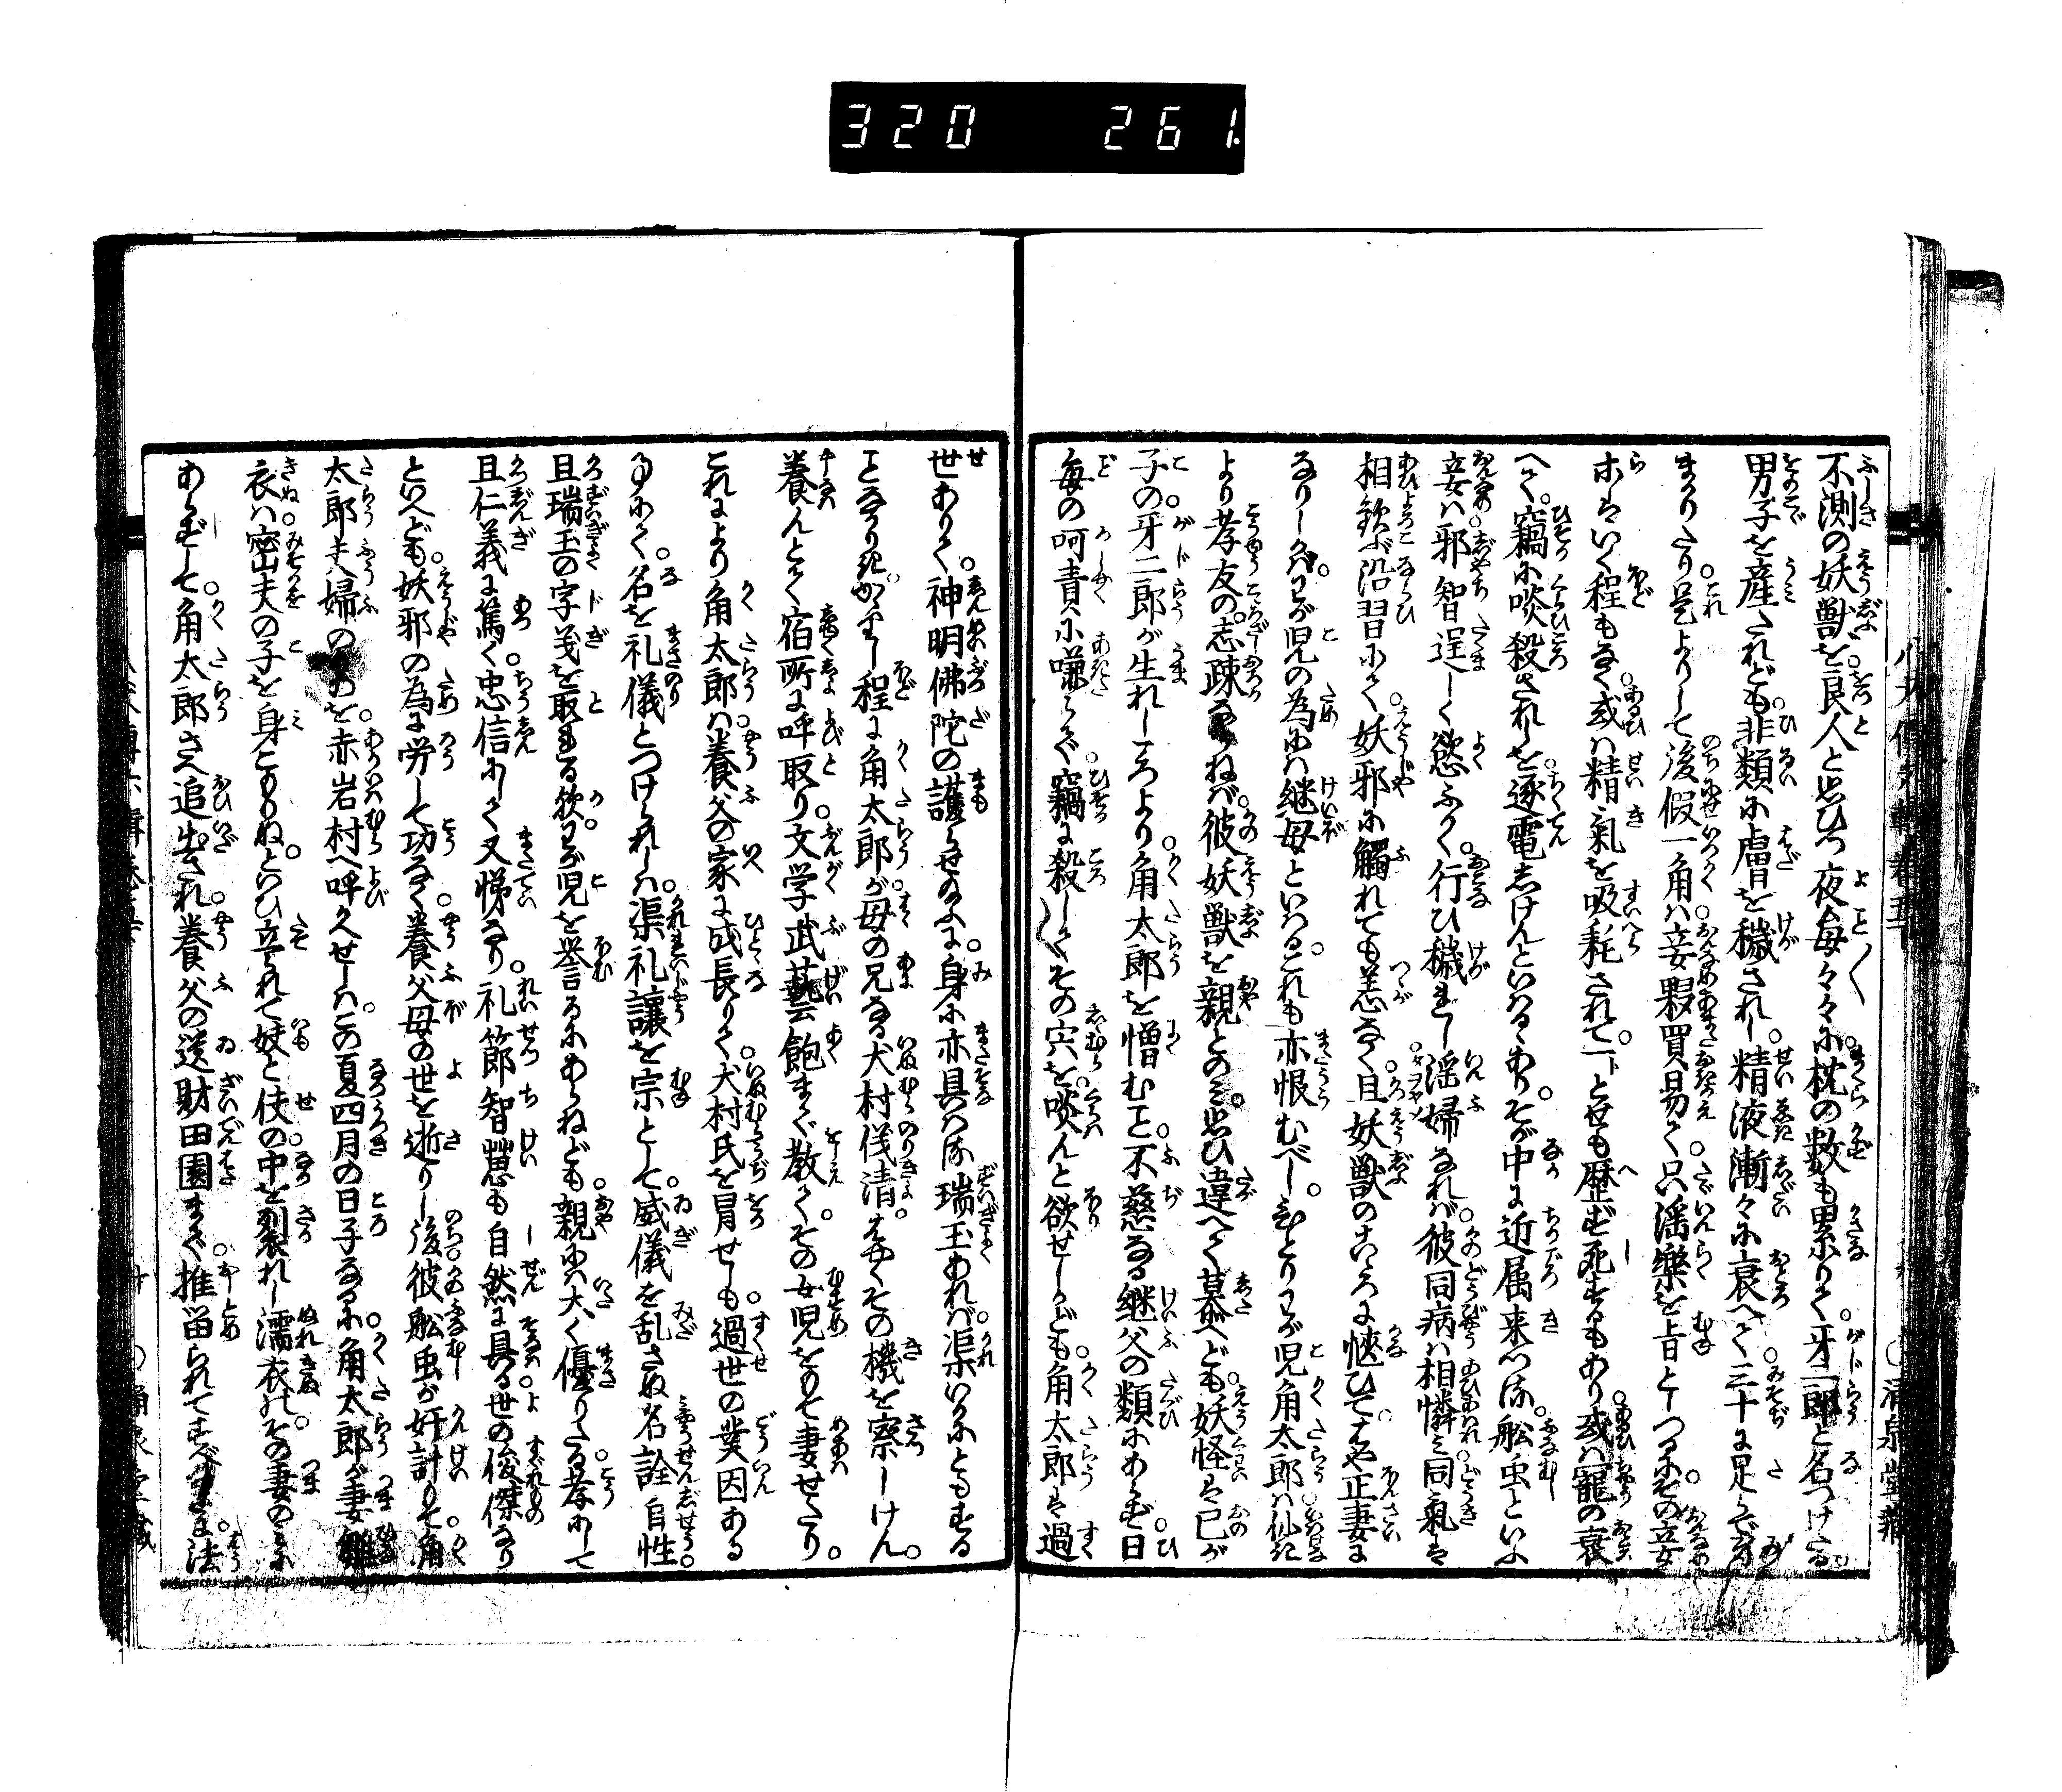 320 261
不測の妖獣を良人と思ひつ夜毎々々に枕の数も累りて牙二郎と名つけたる
男子を産たれども非類に膚を穢されし精液漸々に衰へて三十に足らで身
まかりたり是よりして後假一角は妾夥買易て只滛樂を旨としつるにその妾女
ホもいく程もなく或は精氣を吸耗されて一トとせも歴ず死するもあり或は寵の衰
へて竊に啖殺されしを逐電しけんといはるゝありそが中に近属来つる舩虫といふ
妾は邪智逞しく慾ふかく行ひ穢れし滛婦なれば彼同病は相憐み同氣は
相歓ぶ沿習にて妖邪に觸れても恙なく且妖獣のこゝろに愜ひてはや正妻に
なりしかばわが児の為には継母といはるこれも亦恨むべしひとりわが児角太郎は仙き
より孝友の志疎ならねば彼妖獣を親とのみ思ひ違へて慕へども妖怪は已が
子の牙二郎が生れしころより角太郎を憎むこと不慈なる継父の類にあらず日
毎の呵責に嗛らで竊に殺してその宍を啖んと欲せしかども角太郎は過
世ありて神明佛陀の護らせ給ふ身に亦具はる瑞玉あれば渠いかにともする
ことなかりきかゝりし程に角太郎が母の兄なる犬村儀清はやくその機を察しけん
養んとて宿所に呼取り文学武藝云飽まで教てその女児をもて妻せたり
これにより角太郎は養父の家に成長りて犬村氏を冒せしも過世の業因ある
事にて名を礼儀とつけられしは渠礼讓を宗として威儀を乱さぬ名詮自性
且瑞玉の字義を取れる歟わが児を誉るにあらねども親には太く優りたる孝にして
且仁義に篤く忠信にして又悌なり礼節智慧も自然に具る世の俊傑なり
といへども妖邪の為に労して功なく養父母の世を逝りし後彼舩虫が奸計りて角
太郎夫婦のものを赤岩村へ呼入せしはこの夏四月の日子なるに角太郎が妻雛
衣は密夫の子を身ごもりぬといひ立られて妓と伎の中を裂れし濡衣はその妻のみに
あらずして角太郎さへ追出され養父の送財田園まで推畄られてすべなきまゝに法